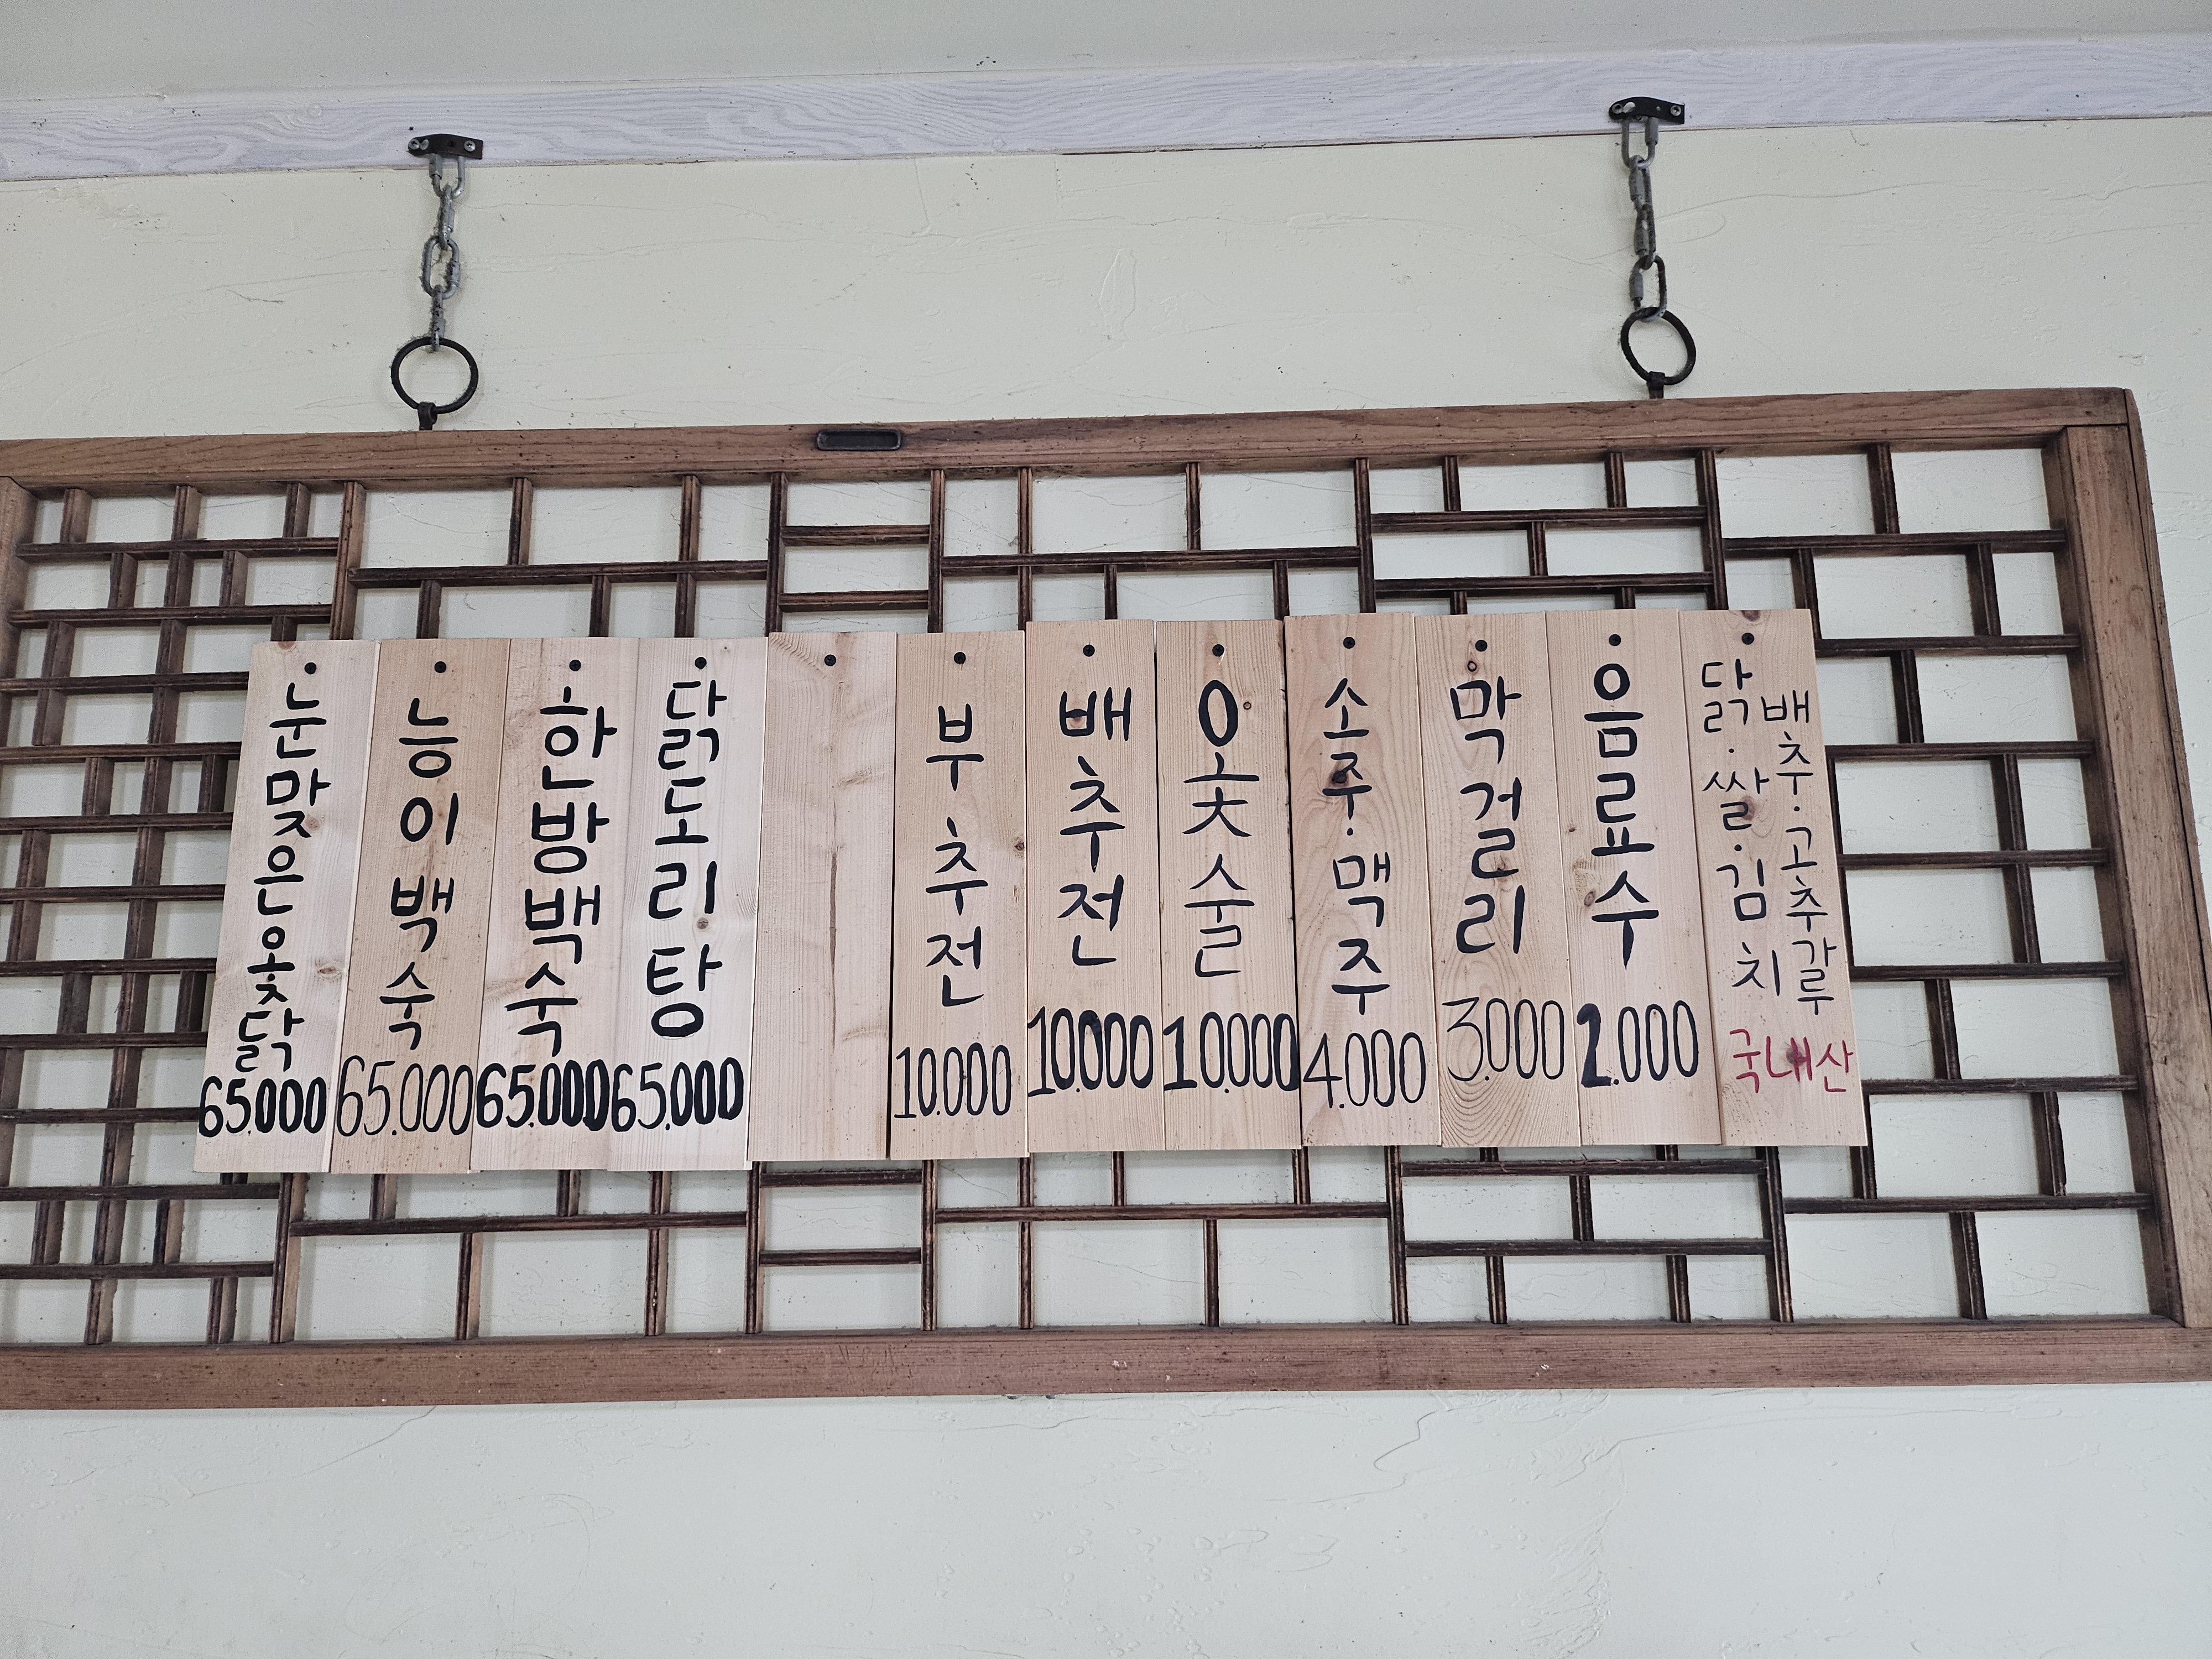 눈맞은옻닭
65.000
능이백숙
65.000
한방백숙
65.000
닭도리탕
65.000
부추전
10.000
배추전
10.000
옻술
10.000
소주·맥주
4.000
막걸리
3.000
음료수
2.000
닭·쌀·김치
배추·고추가루
국내산